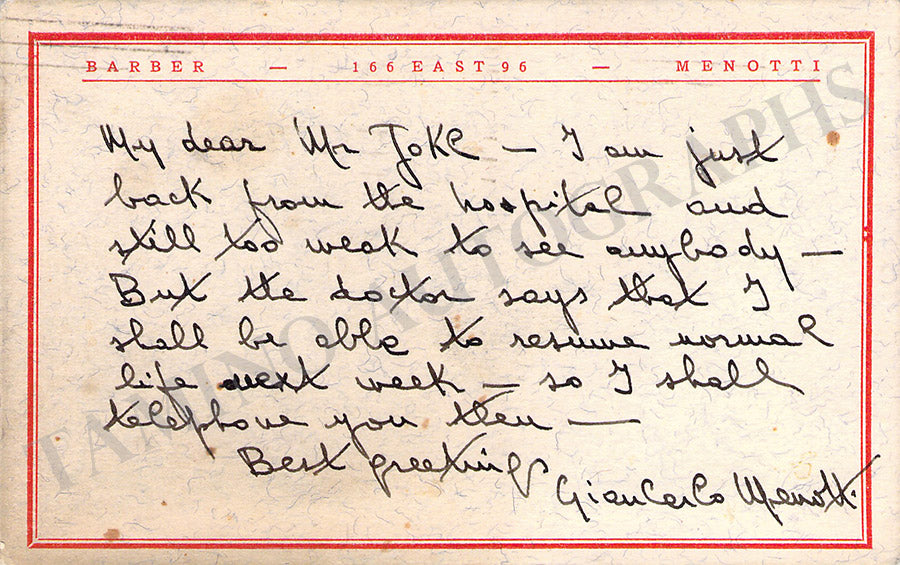 BARBER — 166 EAST 96 — MENOTTI
My dear Mr Joke — I am just
back from the hospital and
still too weak to see anybody —
But the doctor says that I
shall be able to resume normal
life next week — so I shall
telephone you then —
Best greetings
Giancarlo Menotti
TAMINO AUTOGRAPHS